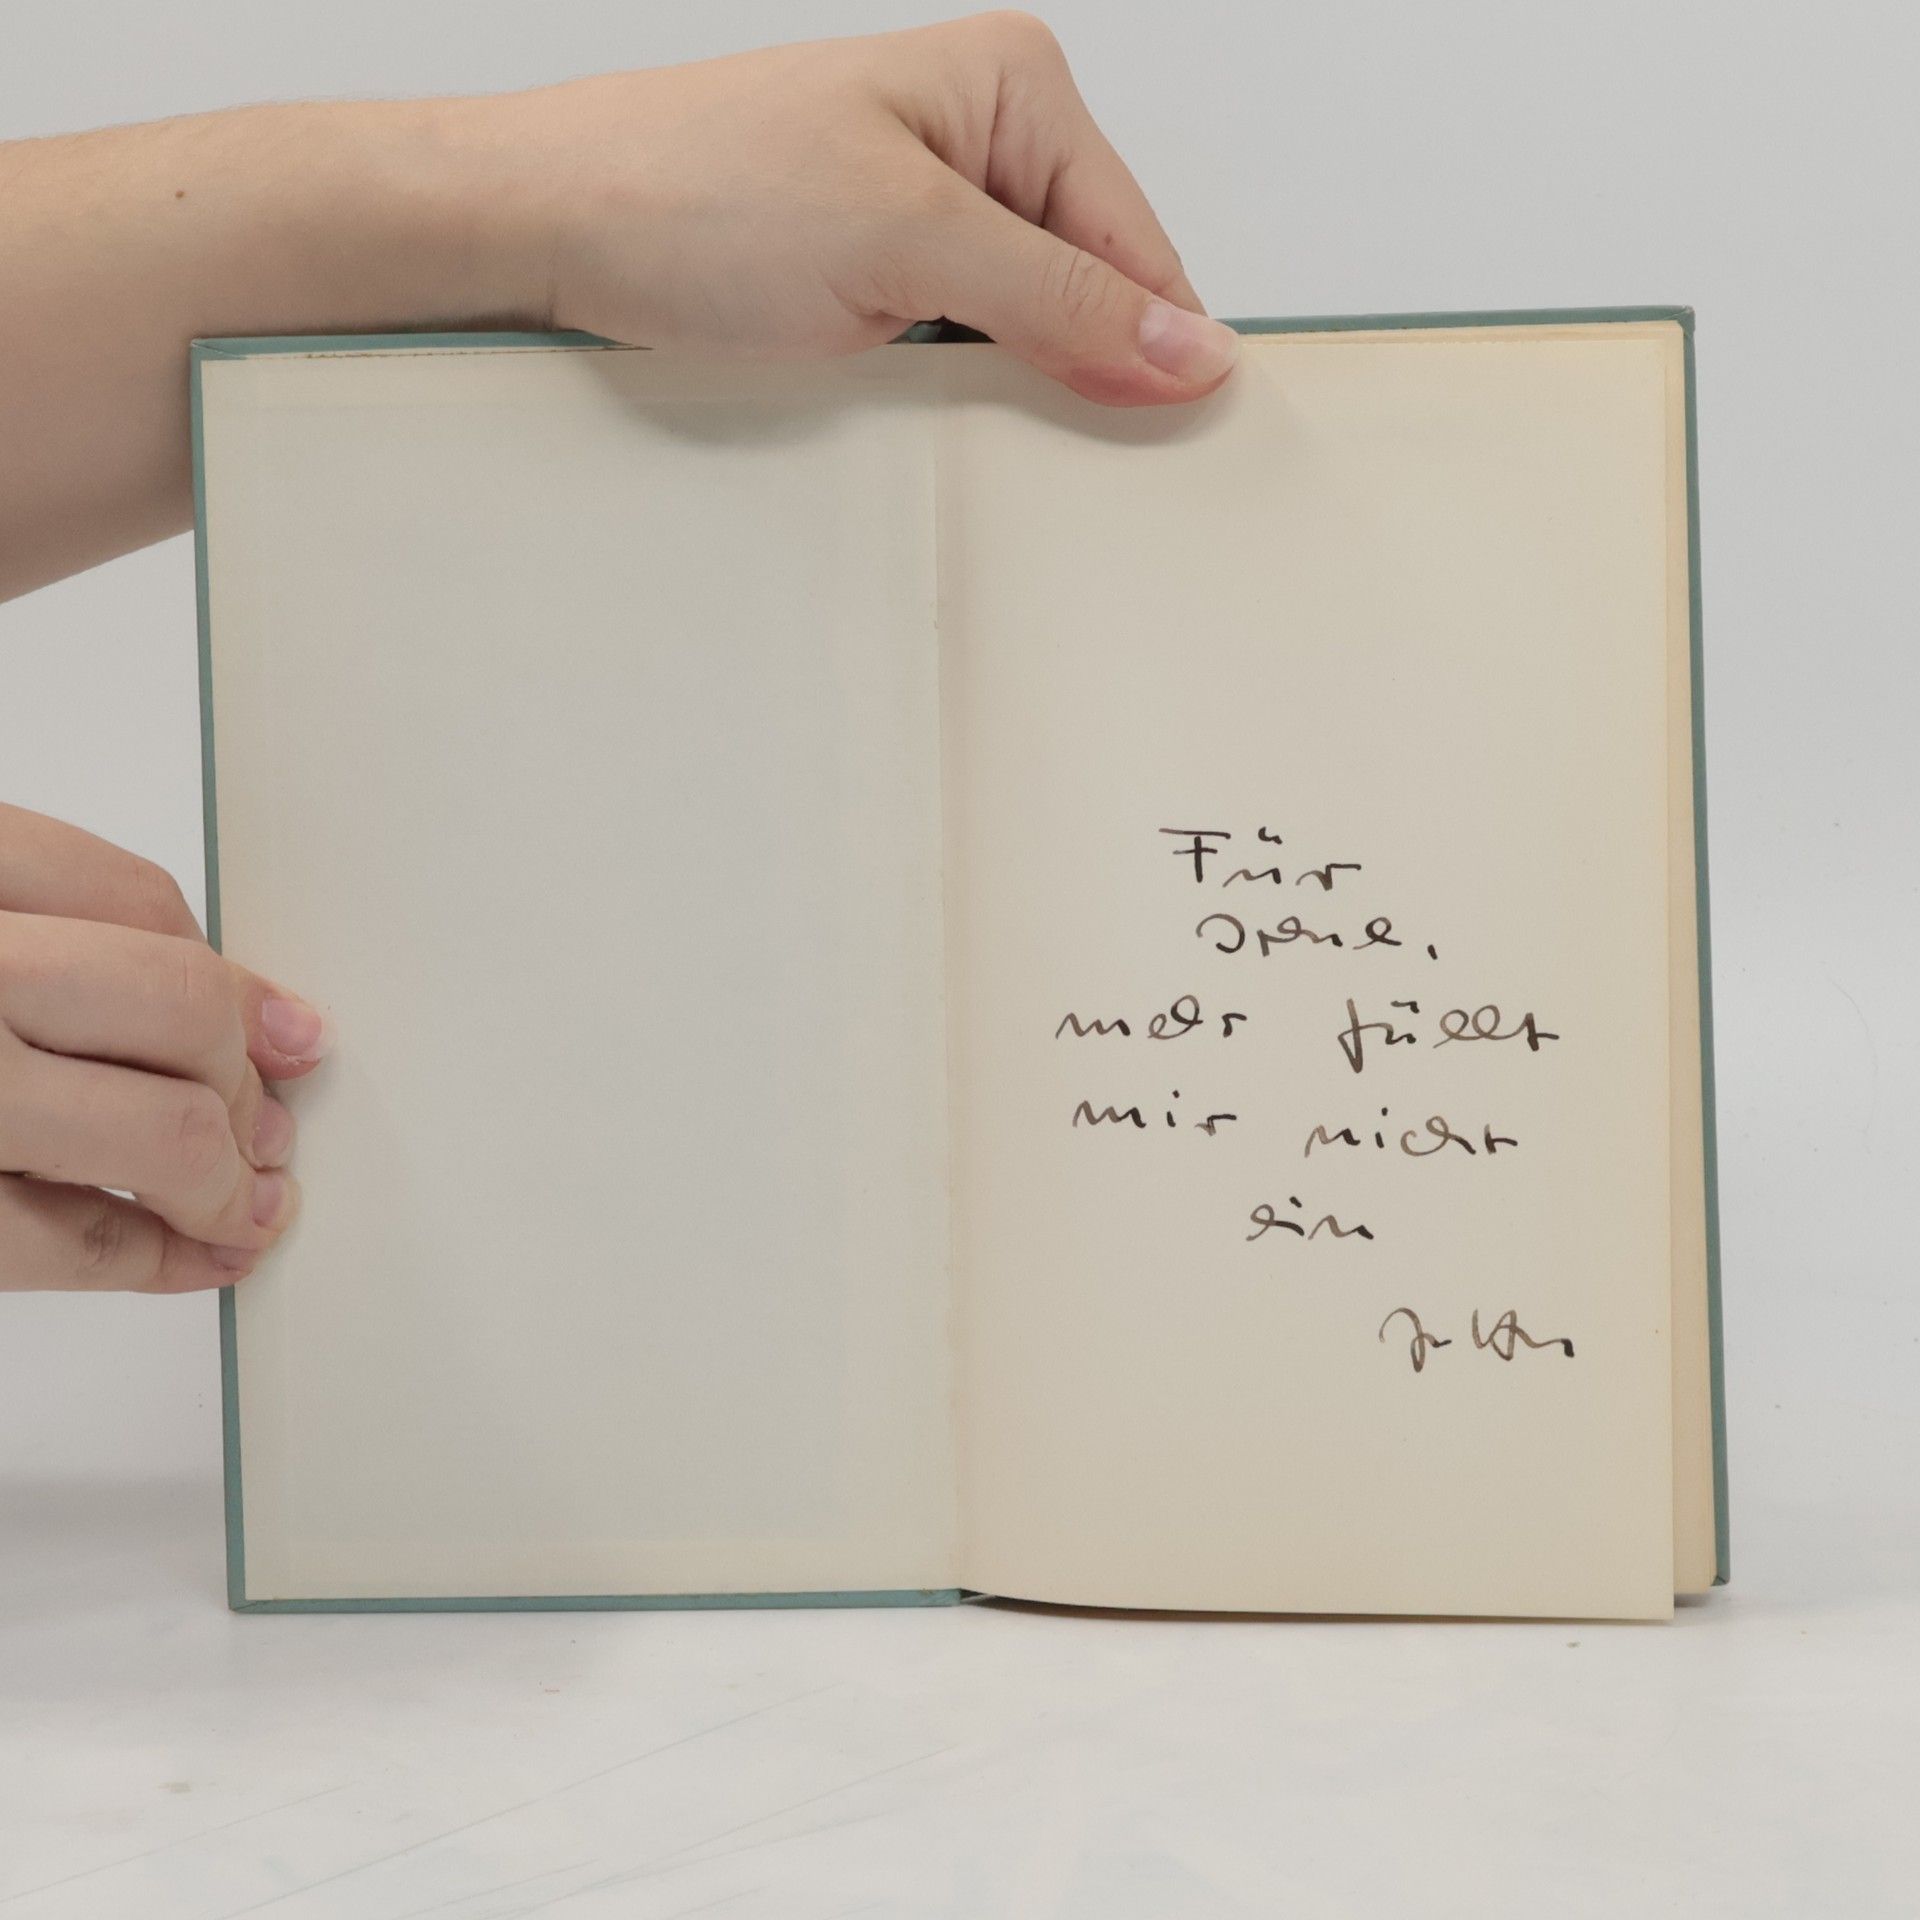 Für
Irene,
mehr füllt
mir nicht
ein